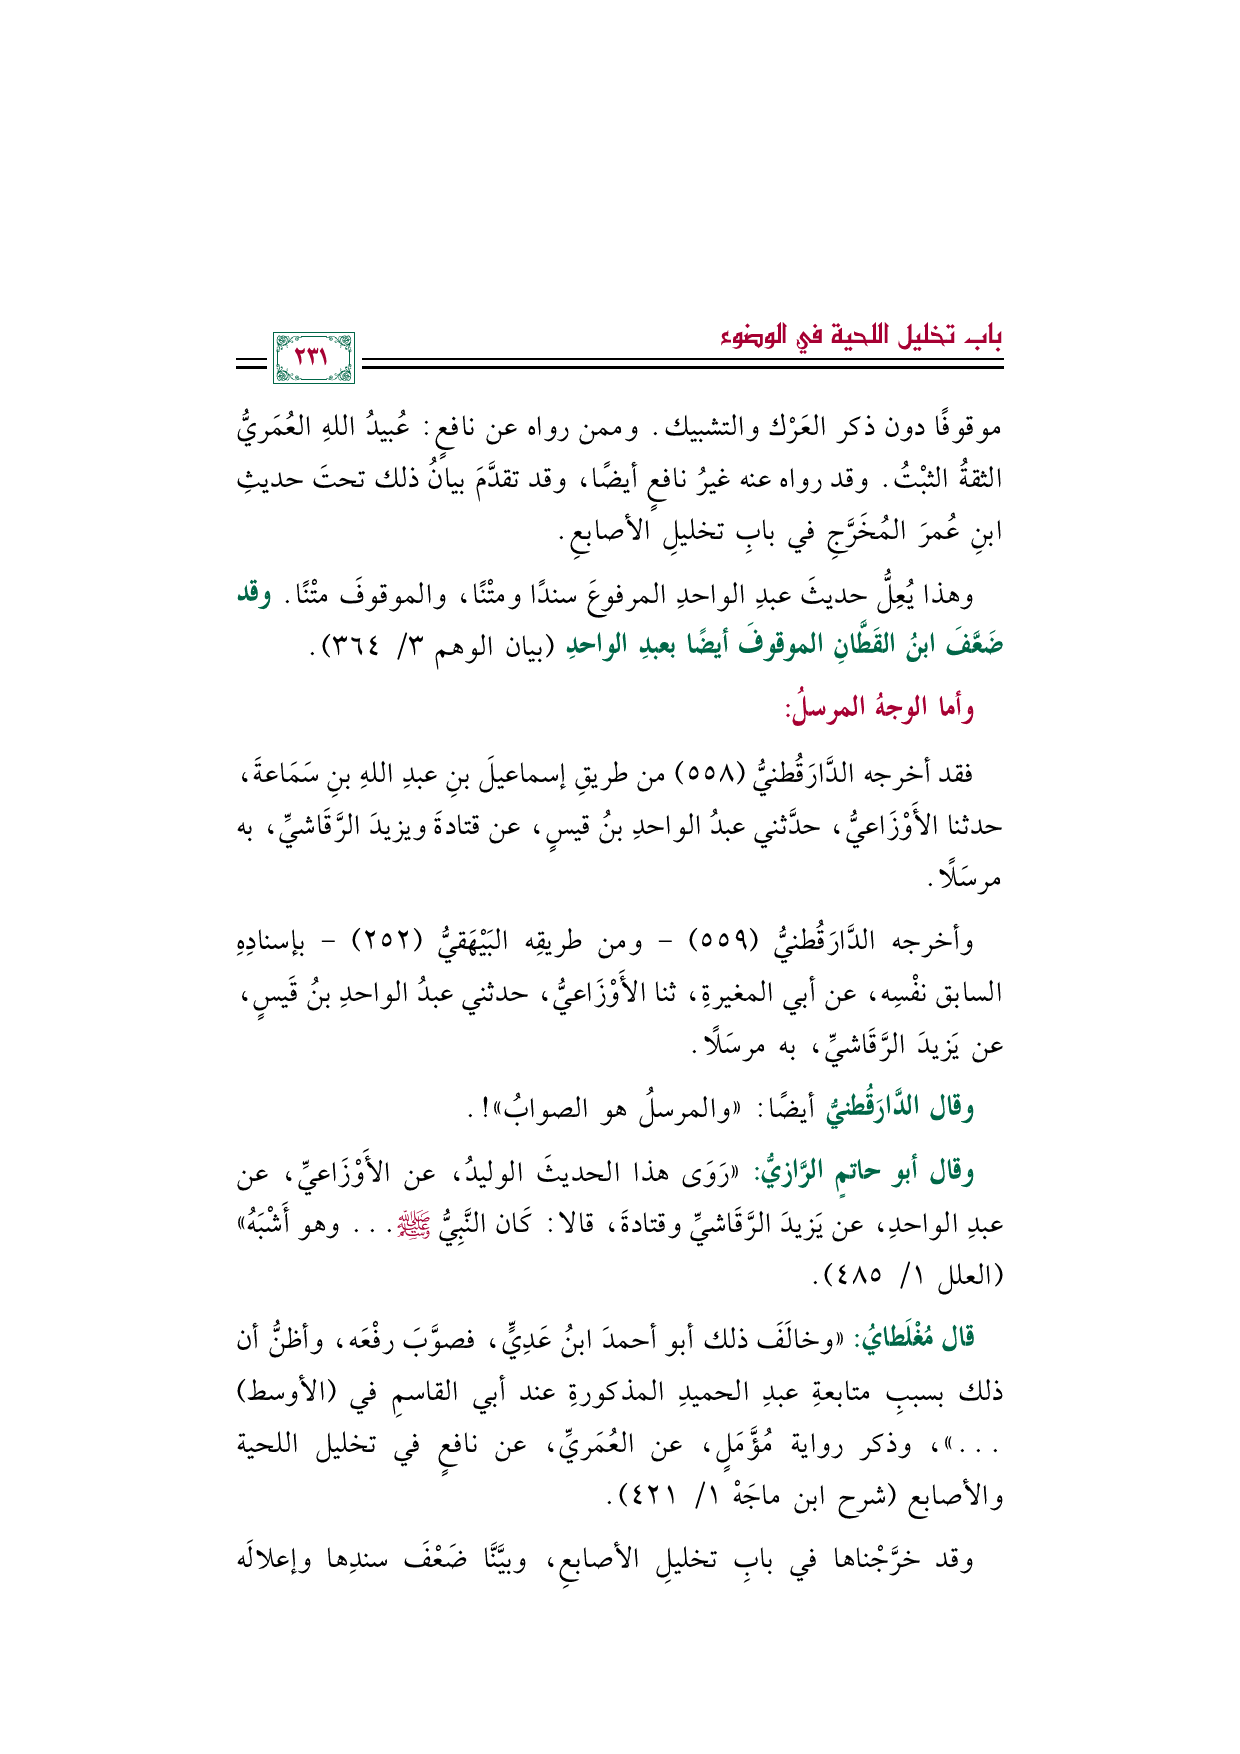 باب تخليل اللحية في الوضوء
٢٣١
موقوفًا دون ذكر العَرْك والتشبيك. وممن رواه عن نافعٍ: عُبيدُ اللهِ العُمَريُّ
الثقةُ الثبْتُ. وقد رواه عنه غيرُ نافعٍ أيضًا، وقد تقدَّمَ بيانُ ذلك تحتَ حديثِ
ابنِ عُمرَ المُخَرَّجِ في بابِ تخليلِ الأصابعِ.
وهذا يُعِلُّ حديثَ عبدِ الواحدِ المرفوعَ سندًا ومتْنًا، والموقوفَ متْنًا. وقد
ضَعَّفَ ابنُ القَطَّانِ الموقوفَ أيضًا بعبدِ الواحدِ (بيان الوهم ٣/ ٣٦٤).
وأما الوجهُ المرسلُ:
فقد أخرجه الدَّارَقُطنيُّ (٥٥٨) من طريقِ إسماعيلَ بنِ عبدِ اللهِ بنِ سَمَاعةَ،
حدثنا الأَوْزَاعيُّ، حدَّثني عبدُ الواحدِ بنُ قيسٍ، عن قتادةَ ويزيدَ الرَّقَاشيِّ، به
مرسَلًا.
وأخرجه الدَّارَقُطنيُّ (٥٥٩) – ومن طريقِه البَيْهَقيُّ (٢٥٢) – بإسنادِهِ
السابق نفْسِه، عن أبي المغيرةِ، ثنا الأَوْزَاعيُّ، حدثني عبدُ الواحدِ بنُ قَيسٍ،
عن يَزيدَ الرَّقَاشيِّ، به مرسَلًا.
وقال الدَّارَقُطنيُّ أيضًا: «والمرسلُ هو الصوابُ»!.
وقال أبو حاتمٍ الرَّازيُّ: «رَوَى هذا الحديثَ الوليدُ، عن الأَوْزَاعيِّ، عن
عبدِ الواحدِ، عن يَزيدَ الرَّقَاشيِّ وقتادةَ، قالا: كَان النَّبِيُّ ﷺ... وهو أَشْبَهُ»
(العلل ١/ ٤٨٥).
قال مُغْلَطايُ: «وخالَفَ ذلك أبو أحمدَ ابنُ عَدِيٍّ، فصوَّبَ رفْعَه، وأظنُّ أن
ذلك بسببِ متابعةِ عبدِ الحميدِ المذكورةِ عند أبي القاسمِ في (الأوسط)
...»، وذكر رواية مُؤَّمَلٍ، عن العُمَريِّ، عن نافعٍ في تخليل اللحية
والأصابع (شرح ابن ماجَهْ ١/ ٤٢١).
وقد خرَّجْناها في بابِ تخليلِ الأصابعِ، وبيَّنَّا ضَعْفَ سندِها وإعلالَه